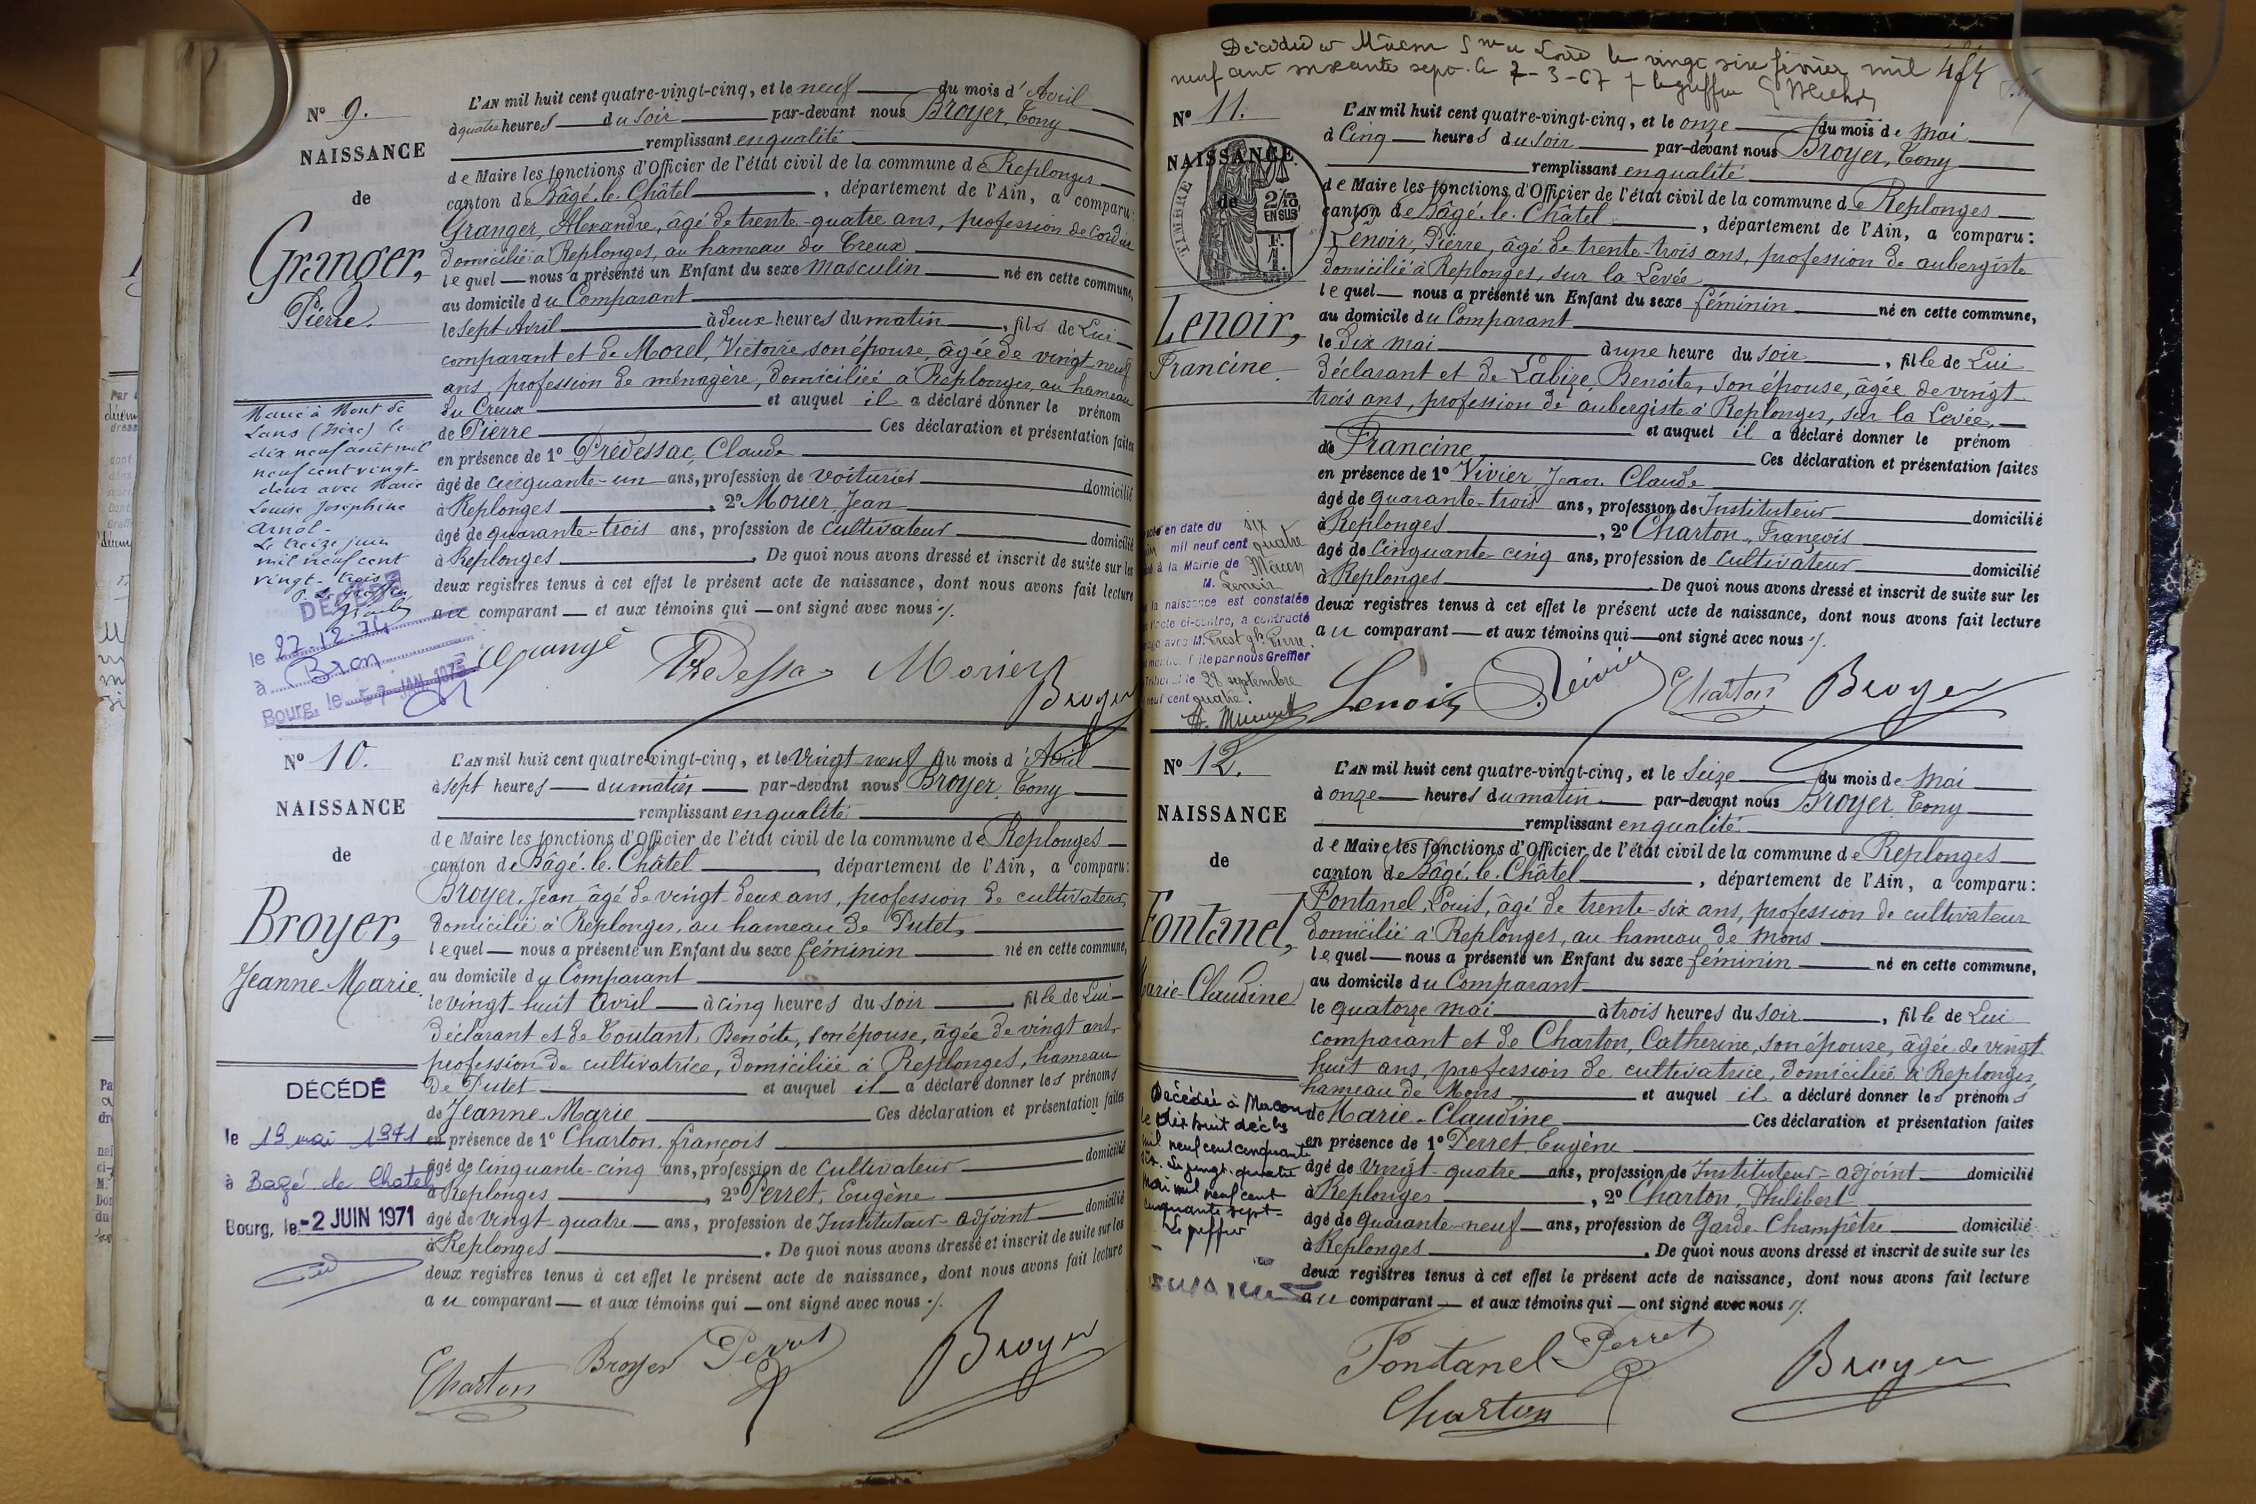 N° 9.
NAISSANCE
de
Granger,
Pierre.
L'AN mil huit cent quatre-vingt-cinq, et le neuf du mois d'Avril
à quatre heures du soir par-devant nous Broyer, Tony
remplissant en qualité
de Maire les fonctions d'Officier de l'état civil de la commune de Replonges
canton de Bâgé-le-Châtel, département de l'Ain, a comparu:
Granger, Alexandre, âgé de trente-quatre ans, profession de cordier
domicilié à Replonges, au hameau du Creux
lequel nous a présenté un Enfant du sexe masculin né en cette commune,
au domicile du Comparant
le sept Avril à deux heures du matin, fils de Lui
comparant et de Morel, Victoire, son épouse, âgée de vingt-neuf
ans, profession de ménagère, domiciliée à Replonges, au hameau
du Creux et auquel il a déclaré donner le prénom
de Pierre Ces déclaration et présentation faites
en présence de 1° Prédessac, Claude
âgé de cinquante-un ans, profession de voiturier domicilié
à Replonges, 2° Morier, Jean
âgé de quarante-trois ans, profession de cultivateur domicilié
à Replonges. De quoi nous avons dressé et inscrit de suite sur les
deux registres tenus à cet effet le présent acte de naissance, dont nous avons fait lecture
au comparant et aux témoins qui ont signé avec nous ./.
Marié à Mont de
Lans (Isère) le
dix neuf août mil
neuf cent vingt-
deux avec Marie
Louise Joséphine
Arnol.
Le treize juin
mil neuf cent
vingt-trois
DÉCÉDÉ
le 27.12.74
à Bron
Bourg, le JAN. 1975
Granger Predessac Morier
Broyer
N° 10.
NAISSANCE
de
Broyer,
Jeanne-Marie.
L'AN mil huit cent quatre-vingt-cinq, et le vingt neuf du mois d'Avril
à sept heures du matin par-devant nous Broyer, Tony
remplissant en qualité
de Maire les fonctions d'Officier de l'état civil de la commune de Replonges
canton de Bâgé-le-Châtel, département de l'Ain, a comparu:
Broyer, Jean âgé de vingt-deux ans, profession de cultivateur,
domicilié à Replonges, au hameau de Putet,
lequel nous a présenté un Enfant du sexe féminin né en cette commune,
au domicile du Comparant
le vingt-huit Avril à cinq heures du soir, fille de Lui
déclarant et de Toutant, Benoîte, son épouse, âgée de vingt ans,
profession de cultivatrice, domiciliée à Replonges, hameau
de Putet et auquel il a déclaré donner les prénoms
de Jeanne-Marie Ces déclaration et présentation faites
en présence de 1° Charton, françois
âgé de cinquante-cinq ans, profession de cultivateur domicilié
à Replonges, 2° Perret, Eugène
âgé de vingt-quatre ans, profession de Instituteur-adjoint domicilié
à Replonges. De quoi nous avons dressé et inscrit de suite sur les
deux registres tenus à cet effet le présent acte de naissance, dont nous avons fait lecture
au comparant et aux témoins qui ont signé avec nous ./.
DÉCÉDÉ
le 19 mai 1971
à Bagé le Chatel
Bourg, le -2 JUIN 1971
Charton Broyer Perret Broyer
Décédée à Mâcon le vingt six février mil
neuf cent soixante sept. le 7-3-67 le greffier
N° 11.
NAISSANCE
de
TIMBRE
2/10
EN SUS
Lenoir,
Francine.
L'AN mil huit cent quatre-vingt-cinq, et le onze du mois de mai
à Cinq heures du soir par-devant nous Broyer, Tony
remplissant en qualité
de Maire les fonctions d'Officier de l'état civil de la commune de Replonges
canton de Bâgé-le-Châtel, département de l'Ain, a comparu:
Lenoir, Pierre, âgé de trente-trois ans, profession de aubergiste
domicilié à Replonges, sur la Levée
lequel nous a présenté un Enfant du sexe féminin né en cette commune,
au domicile du Comparant
le dix mai à une heure du soir, fille de Lui
déclarant et de Labize, Benoîte, son épouse, âgée de vingt-
trois ans, profession de aubergiste à Replonges, sur la Levée,
et auquel il a déclaré donner le prénom
de Francine Ces déclaration et présentation faites
en présence de 1° Vivier, Jean-Claude
âgé de quarante-trois ans, profession de Instituteur domicilié
à Replonges, 2° Charton, François
âgé de Cinquante-cinq ans, profession de cultivateur domicilié
à Replonges. De quoi nous avons dressé et inscrit de suite sur les
deux registres tenus à cet effet le présent acte de naissance, dont nous avons fait lecture
au comparant et aux témoins qui ont signé avec nous ./.
en date du six
mil neuf cent quatre
à la Mairie de Mâcon
M. Lenoir
la naissance est constatée
l'acte ci-contre, a contracté
avec M.
par nous Greffier
le 28 septembre
neuf cent quatre.
Lenoir Vivier Charton Broyer
N° 12.
NAISSANCE
de
Fontanel,
Marie-Claudine
L'AN mil huit cent quatre-vingt-cinq, et le Seize du mois de Mai
à onze heures du matin par-devant nous Broyer, Tony
remplissant en qualité
de Maire les fonctions d'Officier de l'état civil de la commune de Replonges
canton de Bâgé-le-Châtel, département de l'Ain, a comparu:
Fontanel, Louis, âgé de trente-six ans, profession de cultivateur
domicilié à Replonges, au hameau de Mons
lequel nous a présenté un Enfant du sexe féminin né en cette commune,
au domicile du Comparant
le quatorze mai à trois heures du soir, fille de Lui
comparant et de Charton, Catherine, son épouse, âgée de vingt-
huit ans, profession de cultivatrice, domiciliée à Replonges,
hameau de Mons et auquel il a déclaré donner les prénoms
de Marie-Claudine Ces déclaration et présentation faites
en présence de 1° Perret, Eugène
âgé de vingt-quatre ans, profession de Instituteur-adjoint domicilié
à Replonges, 2° Charton, Philibert
âgé de Quarante-neuf ans, profession de Garde-Champêtre domicilié
à Replonges. De quoi nous avons dressé et inscrit de suite sur les
deux registres tenus à cet effet le présent acte de naissance, dont nous avons fait lecture
au comparant et aux témoins qui ont signé avec nous ./.
Décédée à Macon
le dix huit
mil neuf cent cinquante
Le vingt-quatre
mai mil neuf cent
cinquante sept-
Le greffier
Fontanel Perret Broyer
Charton